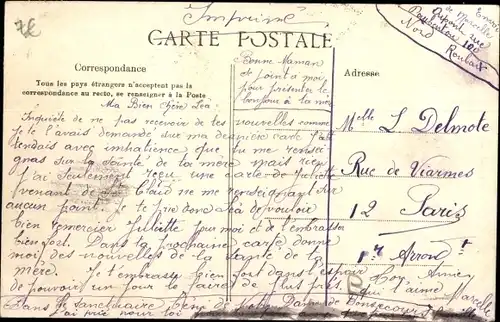 7€
Imprimé
CARTE POSTALE
Correspondance
Tous les pays étrangers n'acceptent pas la
correspondance au recto, se renseigner à la Poste
Adresse
Envoi
de Marcelle
Dupont rue
Roubaix
Nord
Bonne Maman
se joint a moi
pour présenter le
bonjour à ta mère
Ma Bien chère Léa
Inquiète de ne pas recevoir de tes nouvelles comme
je te l'avais demandé sur ma dernière carte j'at
tendais avec impatience que tu me rensei
gnas sur la santé de ta mère mais rien
j'ai seulement reçu une carte de Juliette
venant de St Cloud ne me renseignant sur
aucun point. Je te prie donc Léa de vouloir
bien remercier Juliette pour moi et de l'embrasser
bien fort. Dans ta prochaine carte donne
moi des nouvelles de la santé de ta
mère. Je t'embrasse bien fort dans l'espoir
de pouvoir un jour le faire de plus près
Ton Amie
qui t'aime
Marcelle
Dans le sanctuaire béni de Notre Dame de Bonsecours
j'ai prié pour toi
Melle L Delmote
Rue de Viarmes
12 Paris
1er Arrondt